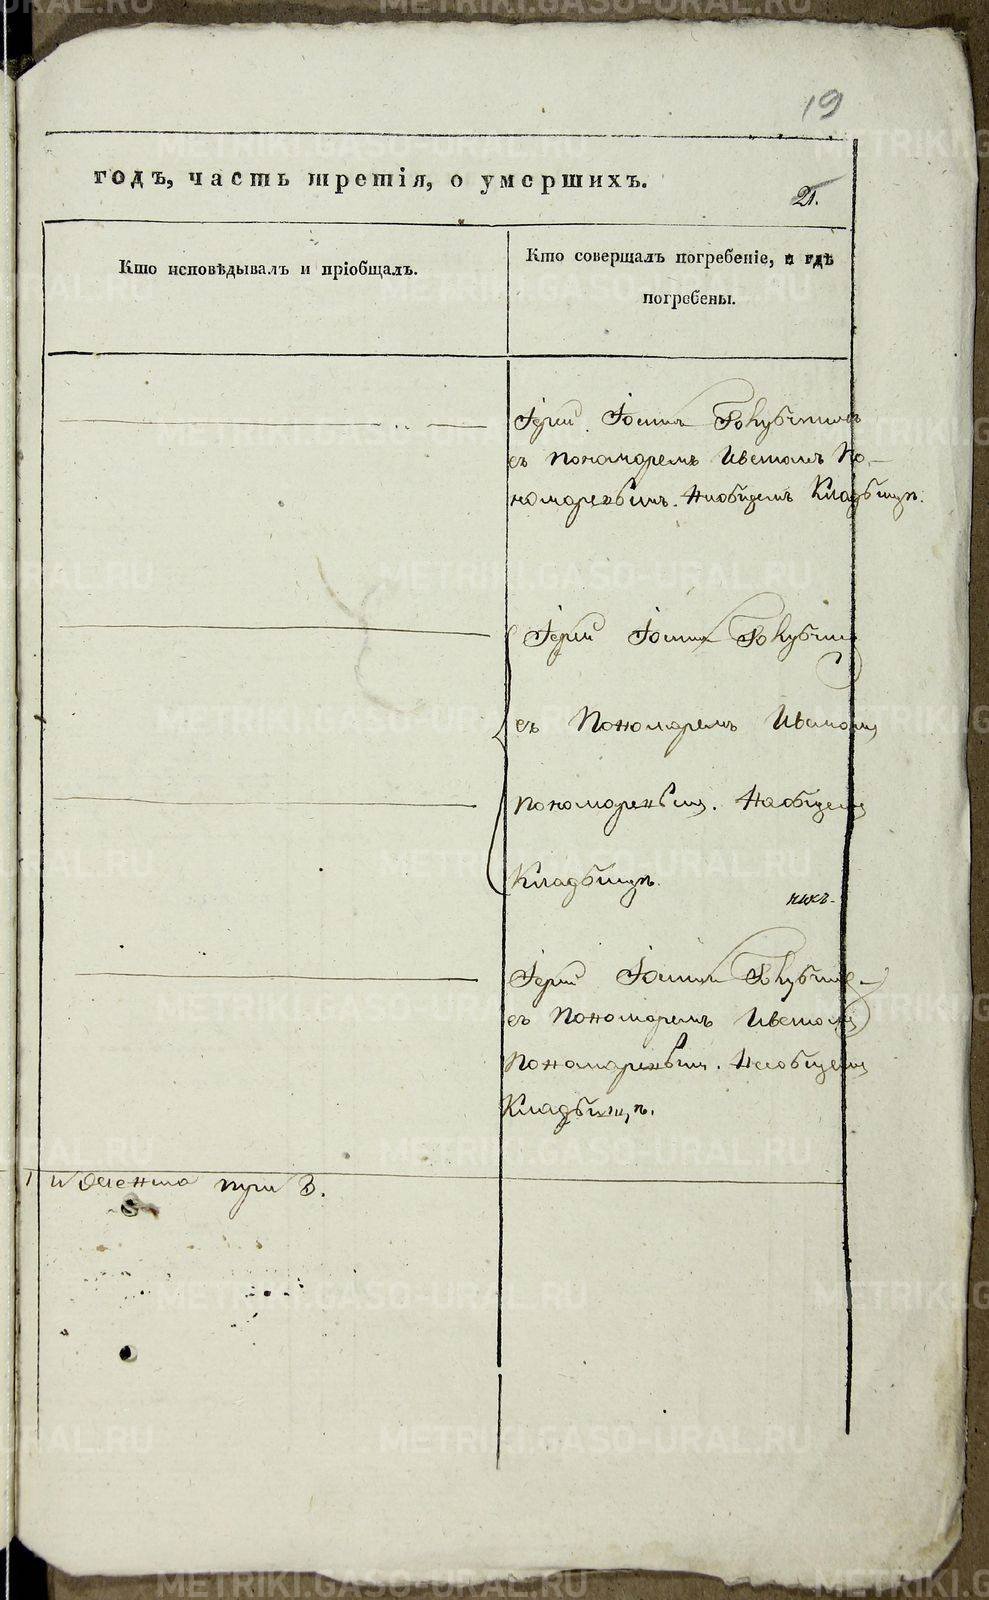 19
годъ, часть третія, о умершихъ.
21.
Кто исповѣдывалъ и пріобщалъ.
Кто совершалъ погребеніе, и гдѣ
погребены.
Іерей Іоаннъ
съ Пономаремъ Иваномъ По-
номаревымъ. На общемъ Кладбищѣ.
Іерей Іоаннъ
съ Пономаремъ Иваномъ
Пономаревымъ. На общемъ
Кладбищѣ.
Іерей Іоаннъ
съ Пономаремъ Иваномъ
Пономаревымъ. На общемъ
Кладбищѣ.
METRIKI.GASO-URAL.RU